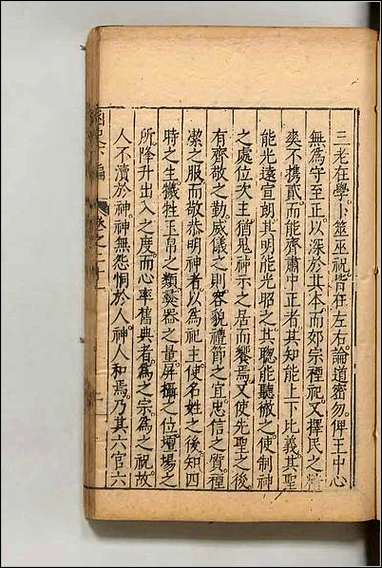 三老在學卜筮巫祝皆在左右論道密勿俾王中心
無爲守至正以深於其本而郊宗禋祀又擇民之精
爽不攜貳而能齊肅中正者其知能上下比義其聖
能光遠宣朗其明能光昭之其聰能聽徹之使制神
之處位次主猶鬼神示之居而饗焉又使先聖之後
有齊敬之勤威儀之則容貌禮節之宜忠信之質禋
潔之服而敬恭明神者以爲祀主使名姓之後知四
時之生犧牲玉帛之類粢器之量屏攝之位壇場之
所降升出入之度而心率舊典者爲之宗爲之祝故
人不瀆於神神無怨恫於人神人和焉乃其六官六
函史下編 卷之二十二